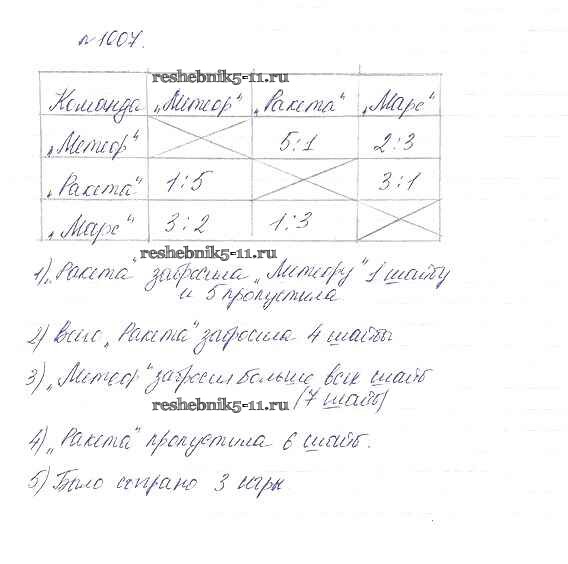 №1007.
reshebnik5-11.ru
Команда „Метеор“ „Ракета“ „Марс“
„Метеор“ 5:1 2:3
„Ракета“ 1:5 3:1
„Марс“ 3:2 1:3
reshebnik5-11.ru
1) „Ракета“ забросила „Метеору“ 1 шайбу
и 5 пропустила
2) Всего „Ракета“ забросила 4 шайбы
3) „Метеор“ забросил больше всех шайб
(7 шайб)
reshebnik5-11.ru
4) „Ракета“ пропустила 6 шайб.
5) Было сыграно 3 игры